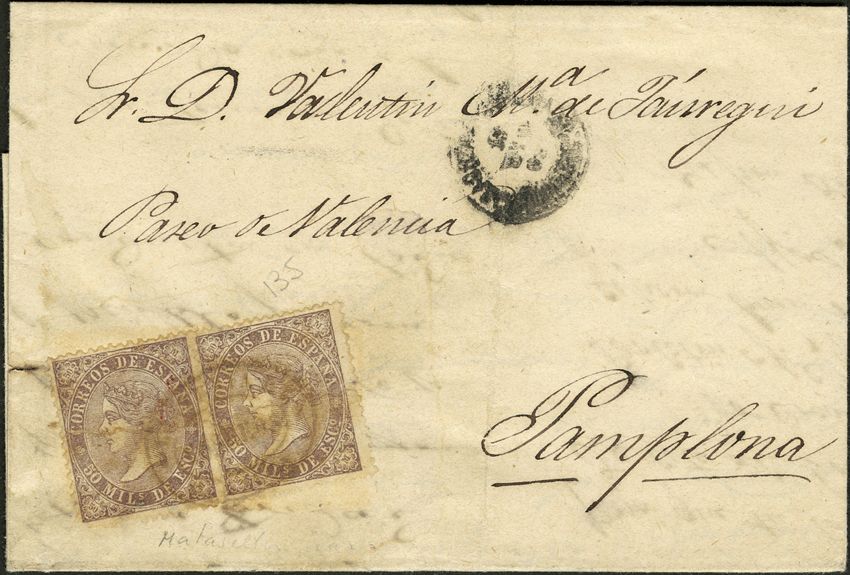 Sr. D. Valentin Mª. de Jáuregui
Paseo de Valencia
135
CORREOS DE ESPAÑA
50 MIL.s DE ESC.o
CORREOS DE ESPAÑA
50 MIL.s DE ESC.o
Pamplona